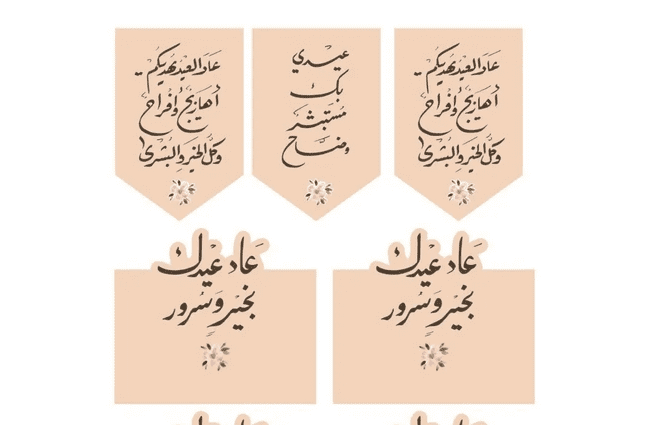 عَادَ العيد يهديكم
أهازيجٌ وأفراح
وكلُّ الخير والبشرى
عيدي
بك
مُستبشر
وضاح
عَادَ العيد يهديكم
أهازيجٌ وأفراح
وكلُّ الخير والبشرى
عَاد عيدك
بخَيْر وَسُرور
عَاد عيدك
بخَيْر وَسُرور